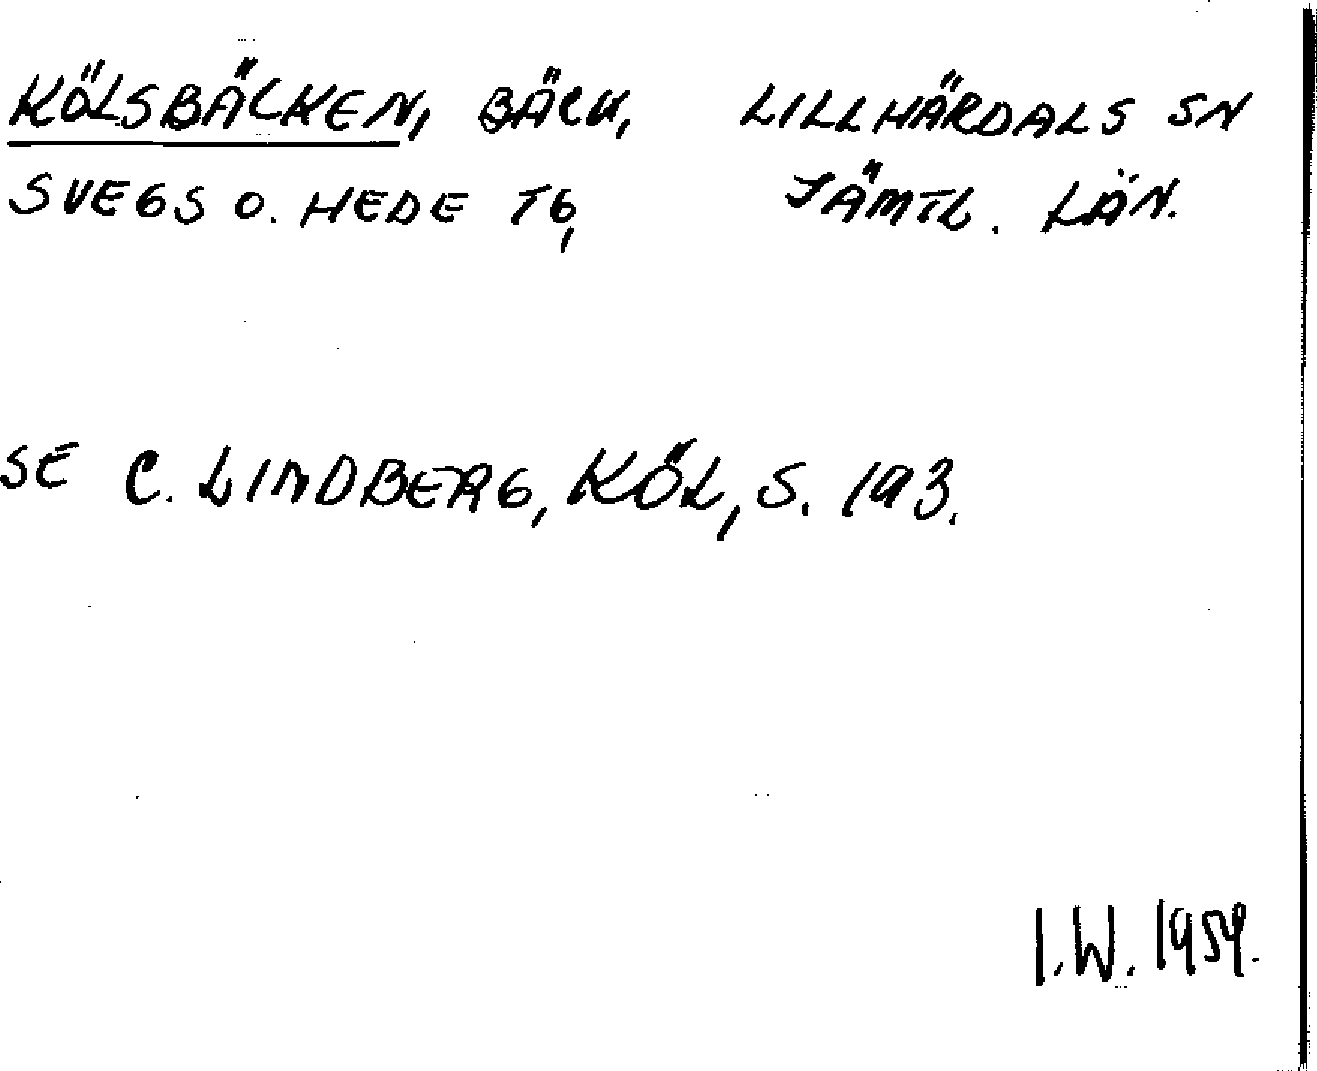 KÖLSBÄCKEN, BÄCK, LILLHÄRDALS SN
SVEGS O. HEDE TG, JÄMTL. LÄN.
SE C. LINDBERG, KÖL, S. 193.
I.W. 1959.